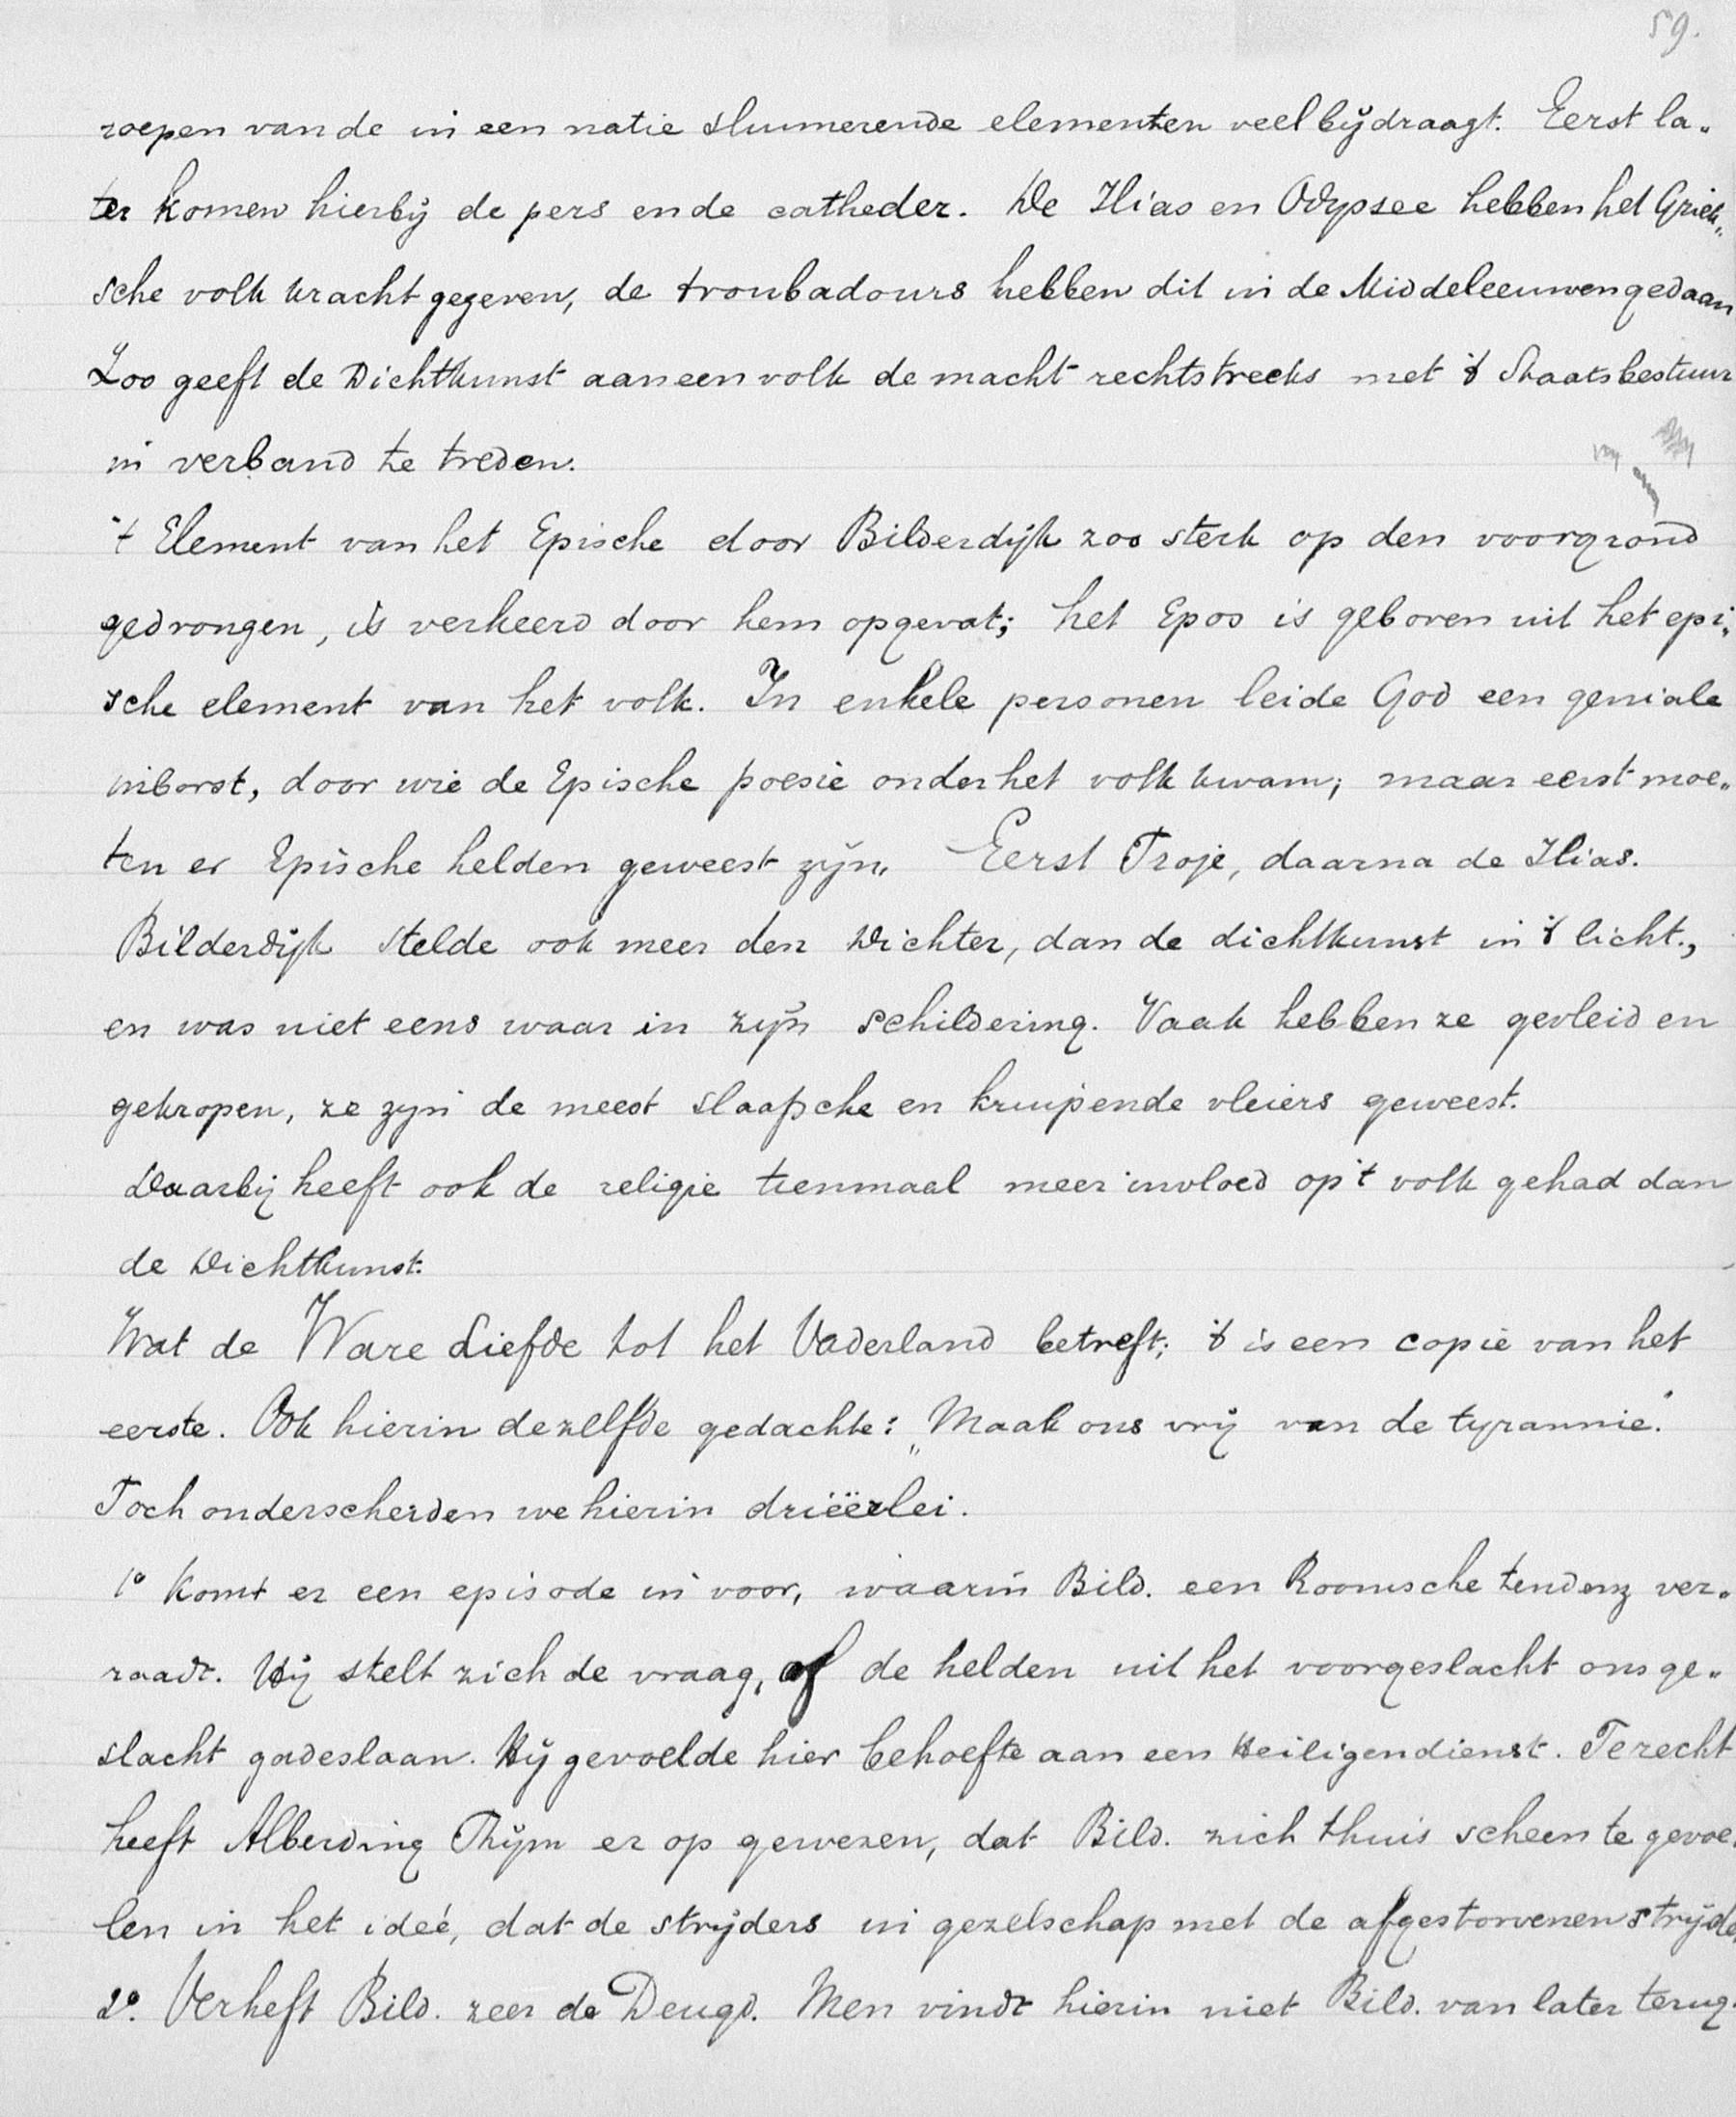 59.
roepen van de in een natie sluimerende elementen veel bijdraagt. Eerst la„
ter komen hierbij de pers en de catheder. De Ilias en Odyssee hebben het Griek„
sche volk kracht gegeven, de troubadours hebben dit in de Middeleeuwen gedaan
Zoo geeft de Dichtkunst aan een volk de macht rechtstreeks met 't Staatsbestuur
in verband te treden.
't Element van het Epische door Bilderdijk zoo sterk op den voorgrond
gedrongen, is verkeerd door hem opgevat; het Epos is geboren uit het epi„
sche element van het volk. In enkele personen leide God een geniale
inborst, door wie de Epische poesie onder het volk kwam; maar eerst moe„
ten er Epische helden geweest zijn. Eerst Troje, daarna de Ilias.
Bilderdijk stelde ook meer den Dichter, dan de dichtkunst in 't licht.,
en was niet eens waar in zijn schildering. Vaak hebben ze gevleid en
gekropen, ze zijn de meest slaafsche en kruipende vleiers geweest.
Daarbij heeft ook de religie tienmaal meer invloed op 't volk gehad dan
de Dichtkunst.
Wat de Ware Liefde tot het Vaderland betreft; 't is een copie van het
eerste. Ook hierin dezelfde gedachte: „Maak ons vrij van de tyrannie."
Toch onderscheiden we hierin driëerlei.
1° Komt er een episode in voor, waarin Bild. een Roomsche tendenz ver„
raadt. Hij stelt zich de vraag, of de helden uit het voorgeslacht ons ge„
slacht gadeslaan. Hij gevoelde hier behoefte aan een Heiligendienst. Terecht
heeft Alberding Thijm er op gewezen, dat Bild. zich thuis scheen te gevoe„
len in het ideé, dat de strijders in gezelschap met de afgestorvenen strijden
2°. Verheft Bild. zeer de Deugd. Men vindt hierin niet Bild. van later terug.